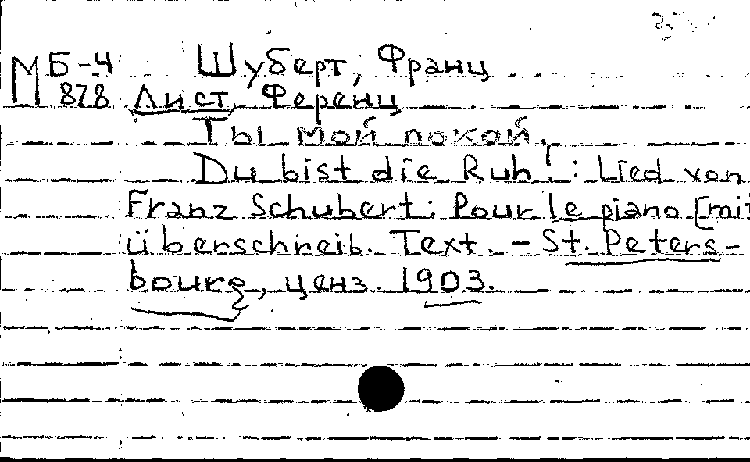 М Б-4 Шуберт, Франц
878 Лист, Ференц
Ты мой покой.
Du bist die Ruh!: Lied von
Franz Schubert: Pour le piano [mit
überschreib. Text. - St. Peters-
bourg, ценз. 1903.